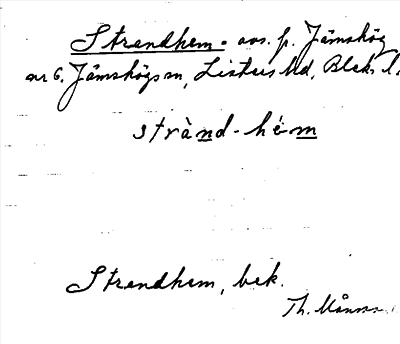 Strandhem - avs. fr. Jämshög
nr 6. Jämshögs sn, Listers hd, Blek. l.
strànd-hém
Strandhem, bek.
Th.